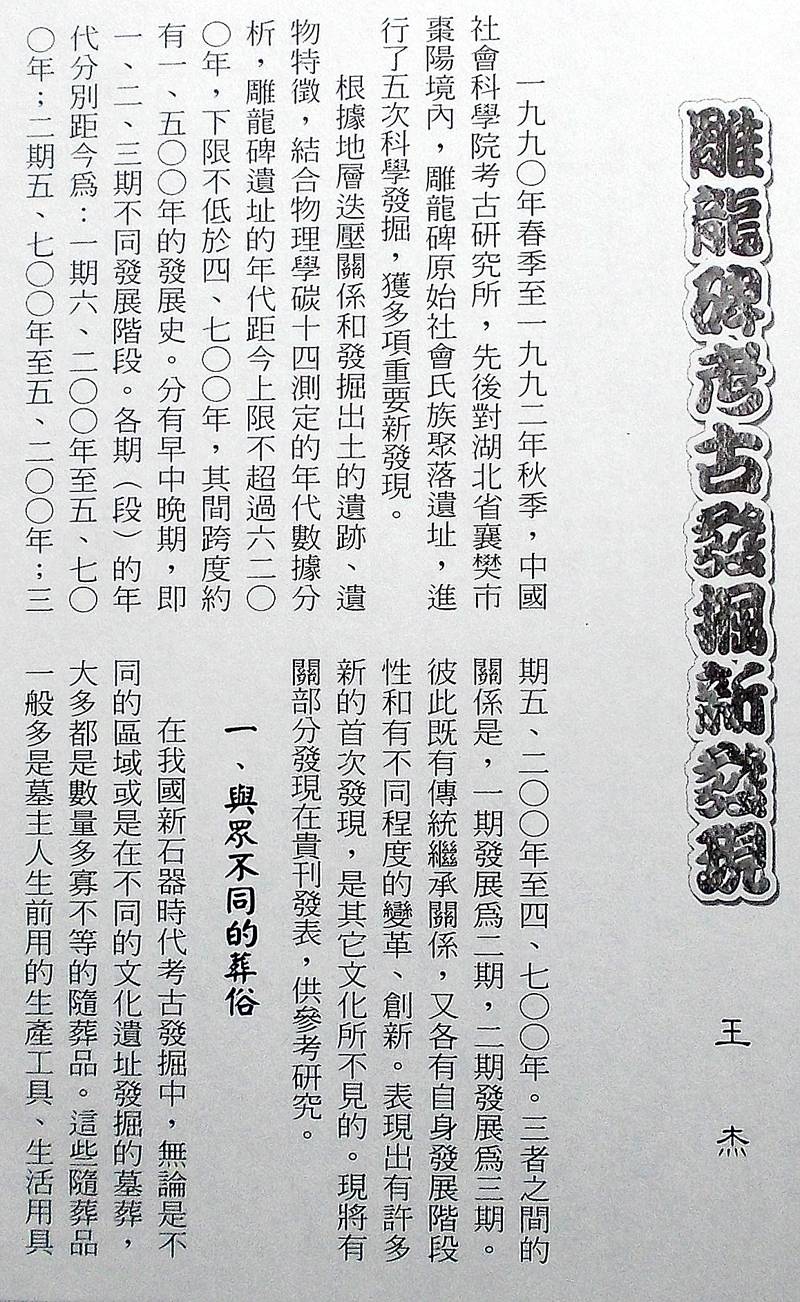 雕龍碑考古發掘新發現
王杰
一九九〇年春季至一九九二年秋季，中國
社會科學院考古研究所，先後對湖北省襄樊市
棗陽境內，雕龍碑原始社會氏族聚落遺址，進
行了五次科學發掘，獲多項重要新發現。
根據地層迭壓關係和發掘出土的遺跡、遺
物特徵，結合物理學碳十四測定的年代數據分
析，雕龍碑遺址的年代距今上限不超過六二〇
〇年，下限不低於四、七〇〇年，其間跨度約
有一、五〇〇年的發展史。分有早中晚期，即
一、二、三期不同發展階段。各期（段）的年
代分別距今爲：一期六、二〇〇年至五、七〇
〇年；二期五、七〇〇年至五、二〇〇年；三
期五、二〇〇年至四、七〇〇年。三者之間的
關係是，一期發展爲二期，二期發展爲三期。
彼此既有傳統繼承關係，又各有自身發展階段
性和有不同程度的變革、創新。表現出有許多
新的首次發現，是其它文化所不見的。現將有
關部分發現在貴刊發表，供參考研究。
一、與眾不同的葬俗
在我國新石器時代考古發掘中，無論是不
同的區域或是在不同的文化遺址發掘的墓葬，
大多都是數量多寡不等的隨葬品。這些隨葬品
一般多是墓主人生前用的生產工具、生活用具